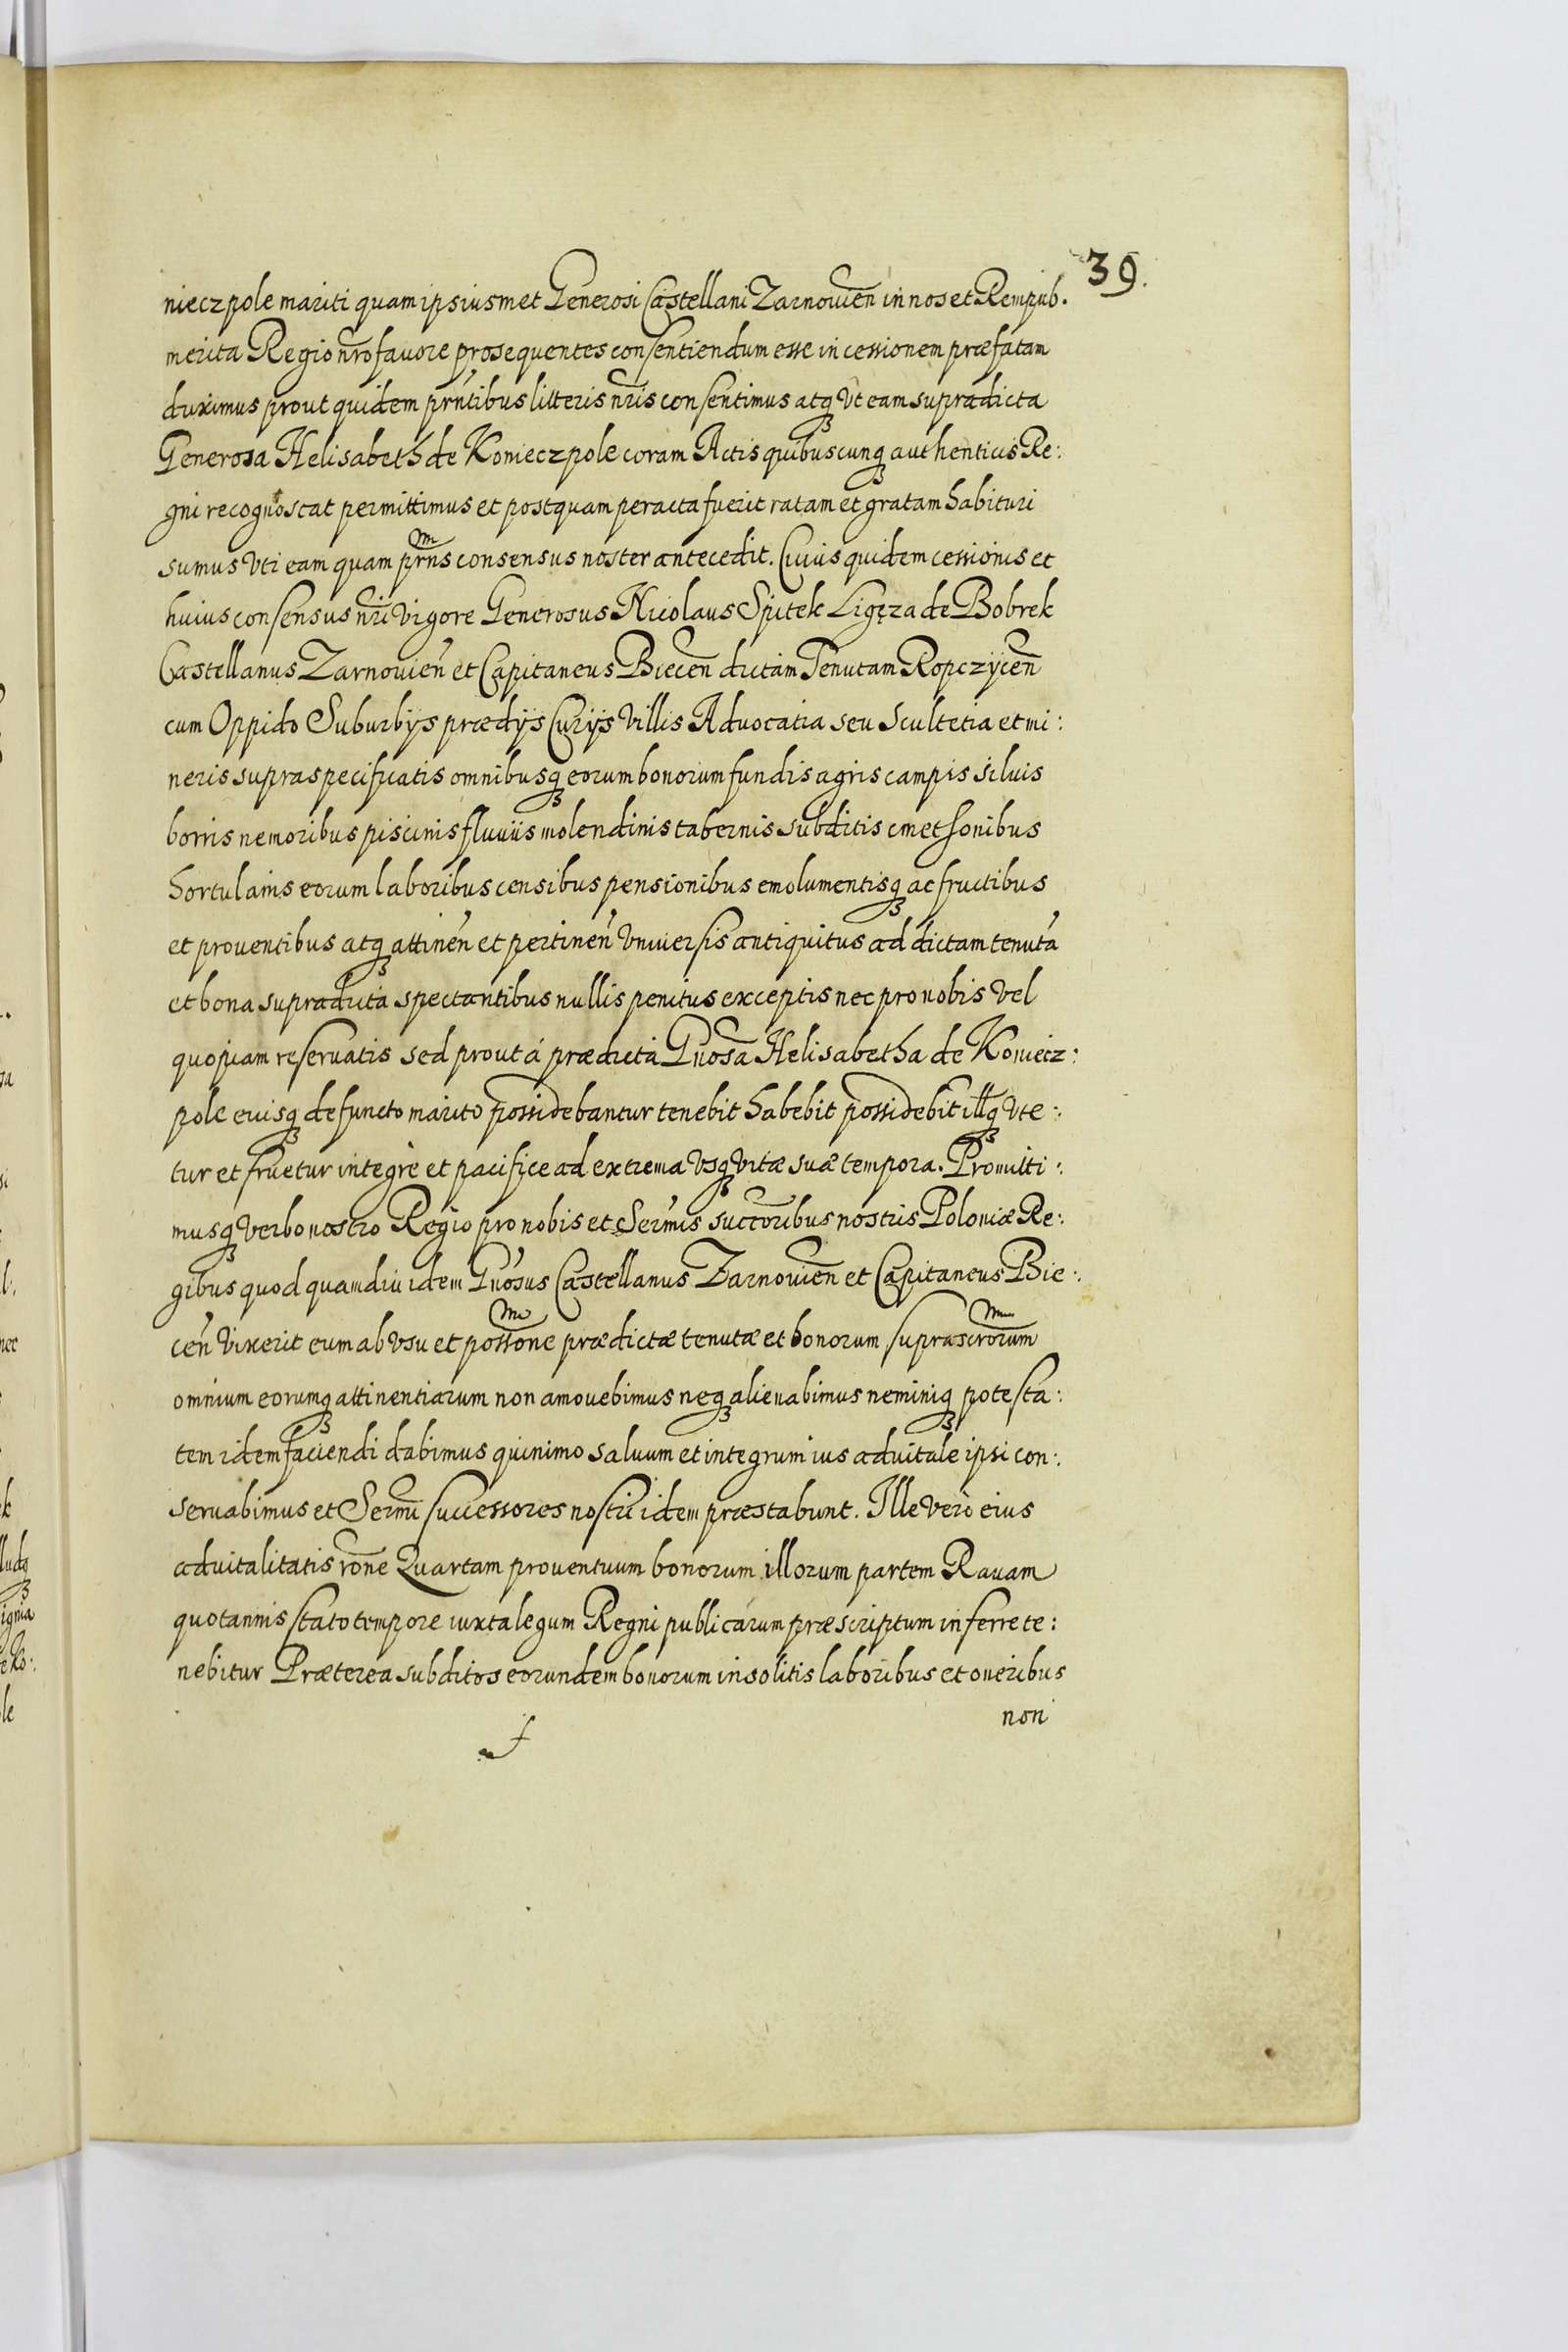 39.
nieczpole mariti quam ipsiusmet Generosi Castellani Zarnowien̄ in nos et Rempub.
merita Regio nr̄o fauore prosequentes consentiendum esse in cessionem præfatam
duximus prout quidem prn̄tibus litteris nr̄is consentimus atq3 vt eam supradicta
Generosa Helisabeth de Konieczpole coram Actis quibuscunq3 authenticis Re:
gni recognoscat permittimus et postquam peracta fuerit ratam et gratam habituri
sumus vti eam quam prn̄s consensus noster antecedit. Cuius quidem cessionis et
huius consensus nr̄i vigore Generosus Nicolaus Spitek Ligęza de Bobrek
Castellanus Zarnowien̄ et Capitaneus Biecen̄ dictam Tenutam Ropczÿcen̄
cum Oppido Suburbÿs prædÿs Curÿs villis Aduocatia seu Scultetia et mi:
neris supraspecificatis omnibusq3 eorum bonorum fundis agris campis siluis
borris nemoribus piscinis fluuiis molendinis tabernis subditis cmethonibus
hortulanis eorum laboribus censibus pensionibus emolumentisq3 ac fructibus
et prouentibus atq3 attinen̄ et pertinen̄ vniuersis antiquitus ad dictam tenutā
et bona supradicta spectantibus nullis penitus exceptis nec pro nobis vel
quopiam reseruatis sed prout á prædicta Gnōsa Helisabetha de Koniecz:
pole eiusq3 defuncto marito possidebantur tenebit habebit possidebit illq3 vte:
tur et fruetur integrè et pacifice ad extrema vsq3 vitæ suæ tempora. Promitti:
musq3 verbo nostro Regio pro nobis et Serm̄is succōribus nostris Poloniæ Re:
gibus quod quamdiu idem Gnōsus Castellanus Zarnowien̄ et Capitaneus Bie:
cen̄ vixerit eum ab vsu et possōne prædictæ tenutæ et bonorum suprascrōrum
omnium eorumq3 attinentiarum non amouebimus neq3 alienabimus neminiq3 potesta:
tem idem faciendi dabimus quinimo saluum et integrum ius aduitale ipsi con:
seruabimus et Serm̄i successores nostri idem præstabunt. Ille verò eius
aduitalitatis rōne Quartam prouentuum bonorum illorum partem Rauam
quotannis stato tempore iuxta legum Regni publicarum præscriptum inferre te:
nebitur Præterea subditos eorundem bonorum insolitis laboribus et oneribus
non